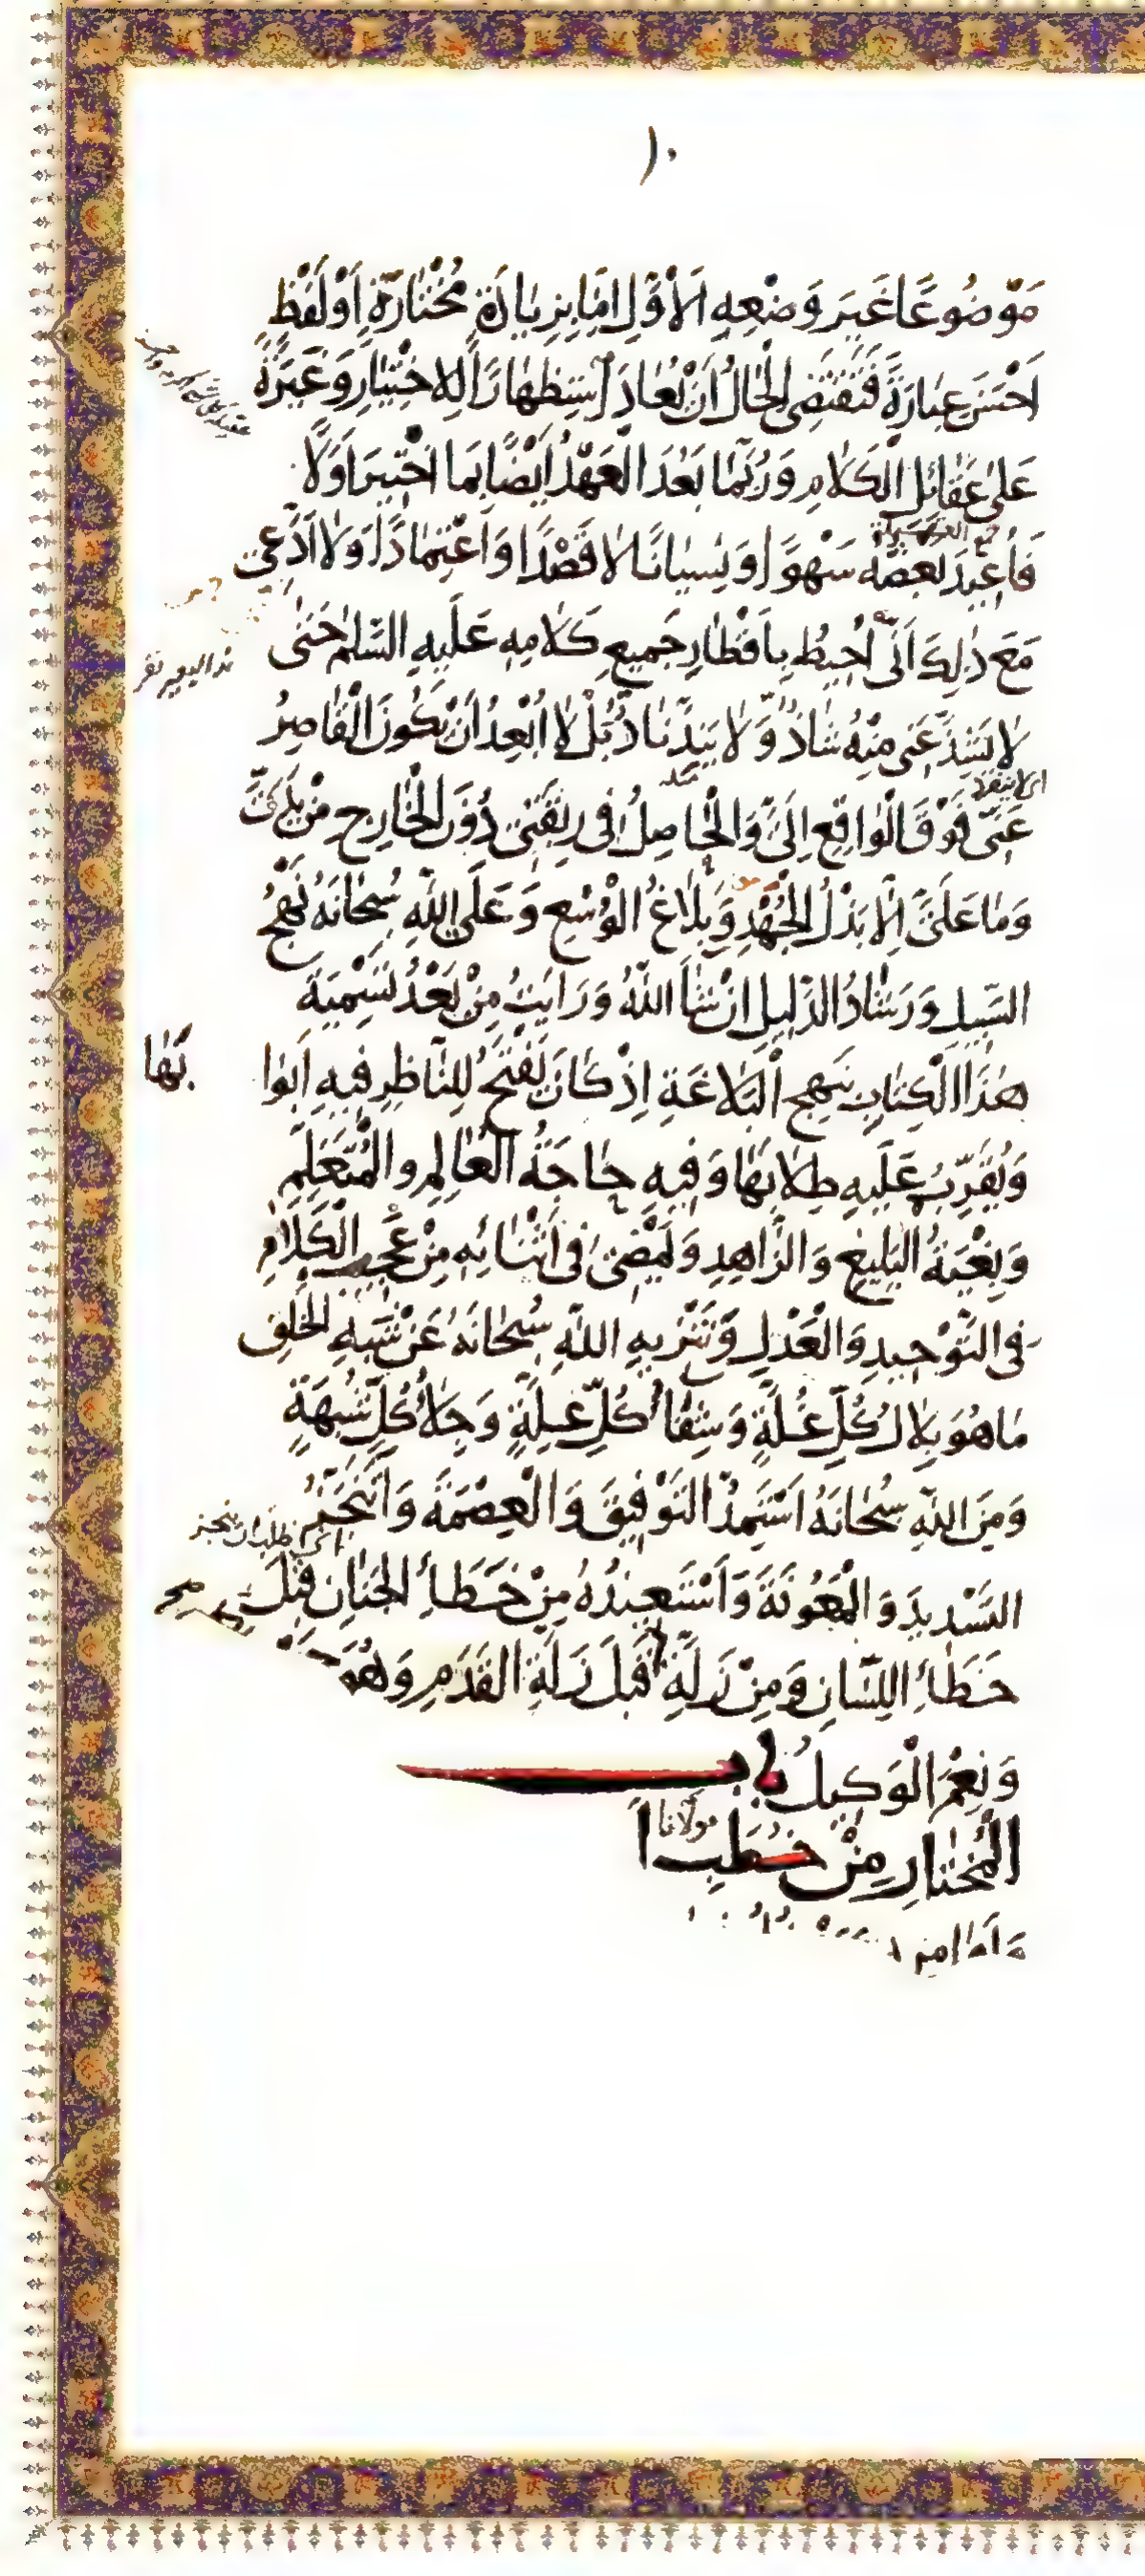 ١٠
مَوْضُوعًا غَيرَ وَضْعِهِ الْاَوَّلِ اِمَّا بِزِيَادَةٍ مُخْتَارَةٍ اَوْ لَفْظٍ
اَحْسَنَ عِبَارَةً فَتَقْتَضِي الْحَالُ اَنْ يُعَادَ اسْتِظْهَارًا لِلِاخْتِيَارِ وَغَيْرَةً
عَلىٰ عَقَائِلِ الْكَلَامِ وَرُبَّمَا بَعُدَ الْعَهْدُ اَيْضًا بِمَا اخْتِيرَ اَوَّلًا
فَاُعِيدَ بَعْضُهُ سَهْوًا وَنِسْيَانًا لَا قَصْدًا وَاعْتِمَادًا وَلَا اَدَّعِي
مَعَ ذٰلِكَ اَنِّي اُحِيطُ بِاَقْطَارِ جَمِيعِ كَلَامِهِ عَلَيهِ السَّلٰمُ حَتّٰى
لَا يَشِذَّ عَنِّي مِنْهُ شَاذٌّ وَلَا يَنِدَّ نَادٌّ بَلْ لَا اُبْعِدُ اَنْ يَكُونَ الْقَاصِرُ
عَنِّي فَوْقَ الْوَاقِعِ اِلَيَّ وَالْحَاصِلُ فِي رِبْقَتِي دُونَ الْخَارِجِ مِنْ يَدَيَّ
وَمَا عَلَيَّ اِلَّا بَذْلُ الْجُهْدِ وَبَلَاغُ الْوُسْعِ وَعَلَى اللّٰهِ سُبْحَانَهُ نَهْجُ
السَّبِيلِ وَرَشَادُ الدَّلِيلِ اِنْ شَاَ اللّٰهُ وَرَاَيْتُ مِنْ بَعْدُ تَسْمِيَةَ
هٰذَا الْكِتَابِ بِنَهْجِ الْبَلَاغَةِ اِذْ كَانَ يَفْتَحُ لِلنَّاظِرِ فِيهِ اَبْوَا بَهَا
وَيُقَرِّبُ عَلَيهِ طِلَابَهَا وَفِيهِ حَاجَةُ الْعَالِمِ وَالْمُتَعَلِّمِ
وَبُغْيَةُ الْبَلِيغِ وَالزَّاهِدِ وَيَمْضِي فِي اَثْنَائِهِ مِنْ عَجِيبِ الْكَلَامِ
فِي التَّوْحِيدِ وَالْعَدْلِ وَتَنْزِيهِ اللّٰهِ سُبْحَانَهُ عَنْ شَبَهِ الْخَلْقِ
مَا هُوَ بِلَالُ كُلِّ غُلَّةٍ وَشِفَاُ كُلِّ عِلَّةٍ وَجِلَاُ كُلِّ شُبْهَةٍ
وَمِنَ اللّٰهِ سُبْحَانَهُ اَسْتَمِدُّ التَّوْفِيقَ وَالْعِصْمَةَ وَاَتَنَجَّزُ
التَّسْدِيدَ وَالْمَعُونَةَ وَاَسْتَعِيذُهُ مِنْ خَطَأِ الْجَنَانِ قَبْلَ
خَطَأِ اللِّسَانِ وَمِنْ زَلَّةِ قَبْلَ زَلَّةِ الْقَدَمِ وَهُوَ
وَنِعْمَ الْوَكِيلُ بَاب
الْمُخْتَارِ مِنْ خُطَبِ
مولانا